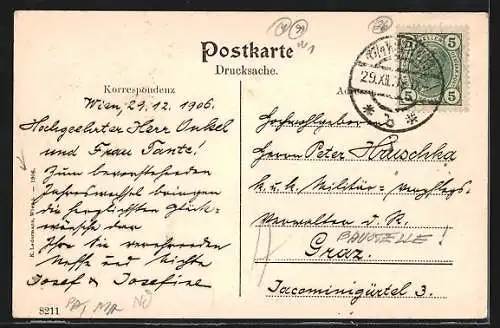 Postkarte
Drucksache.
Korrespondenz
Wien, 29.12.1906.
Hochgeehrter Herr Onkel
und Frau Tante!
Zum bevorstehenden
Jahreswechsel bringen
die herzlichsten Glück-
wünsche dem
Ihre Sie verehrenden
Neffe und Nichte
Josef & Josefine
K. Ledermann, Wien I. — 1906.
8211
PAT MA NO
29.XII.
* b *
5 5
5 5
Hochwohlgeboren
Herrn Peter Huschka
k.u.k. Militär-Verpflegs-
Verwalter d. R.
BAUSTELLE!
Graz.
Jacominigürtel 3.